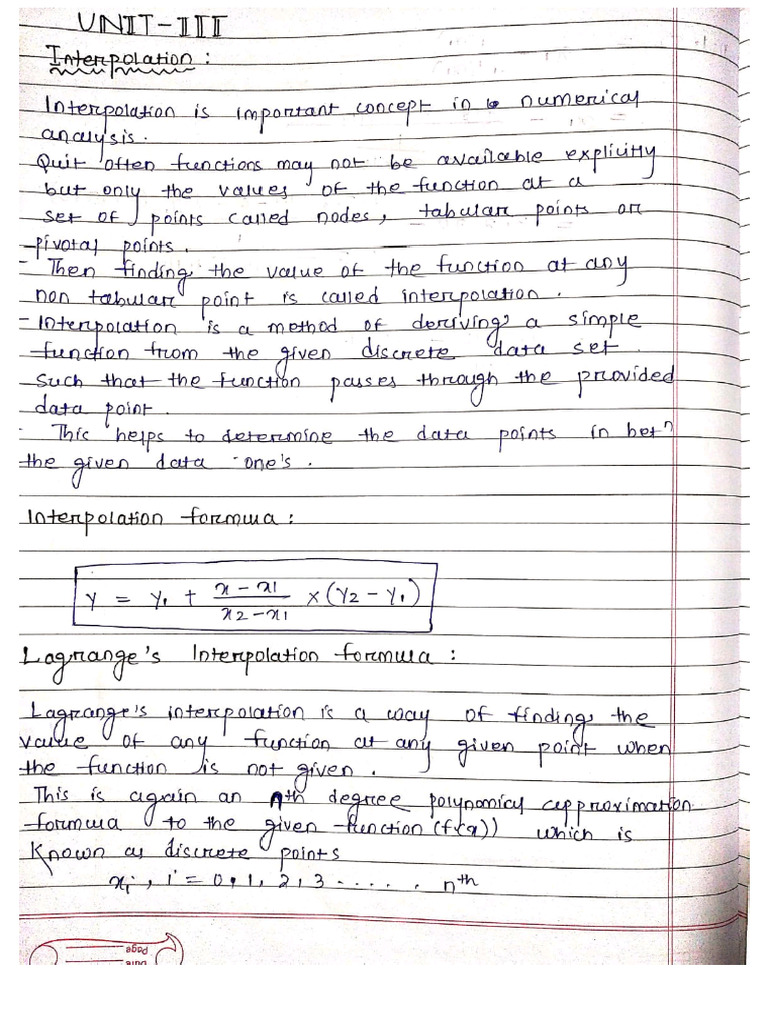 UNIT-III
Interpolation :
Interpolation is important concept in numerical
analysis.
Quit often functions may not be available explicitly
but only the values of the function at a
set of points called nodes, tabular points or
pivotal points.
- Then finding the value of the function at any
non tabular point is called interpolation.
- Interpolation is a method of deriving a simple
function from the given discrete data set
such that the function passes through the provided
data point.
- This helps to determine the data points in betn
the given data one's.
Interpolation formula :
y = y1 + (x - x1)/(x2 - x1) × (y2 - y1)
Lagrange's Interpolation formula :
Lagrange's interpolation is a way of finding the
value of any function at any given point when
the function is not given.
This is again an nth degree polynomial approximation
formula to the given function (f(x)) which is
known as discrete points
xi, i = 0, 1, 2, 3 ..... nth
Page
Date